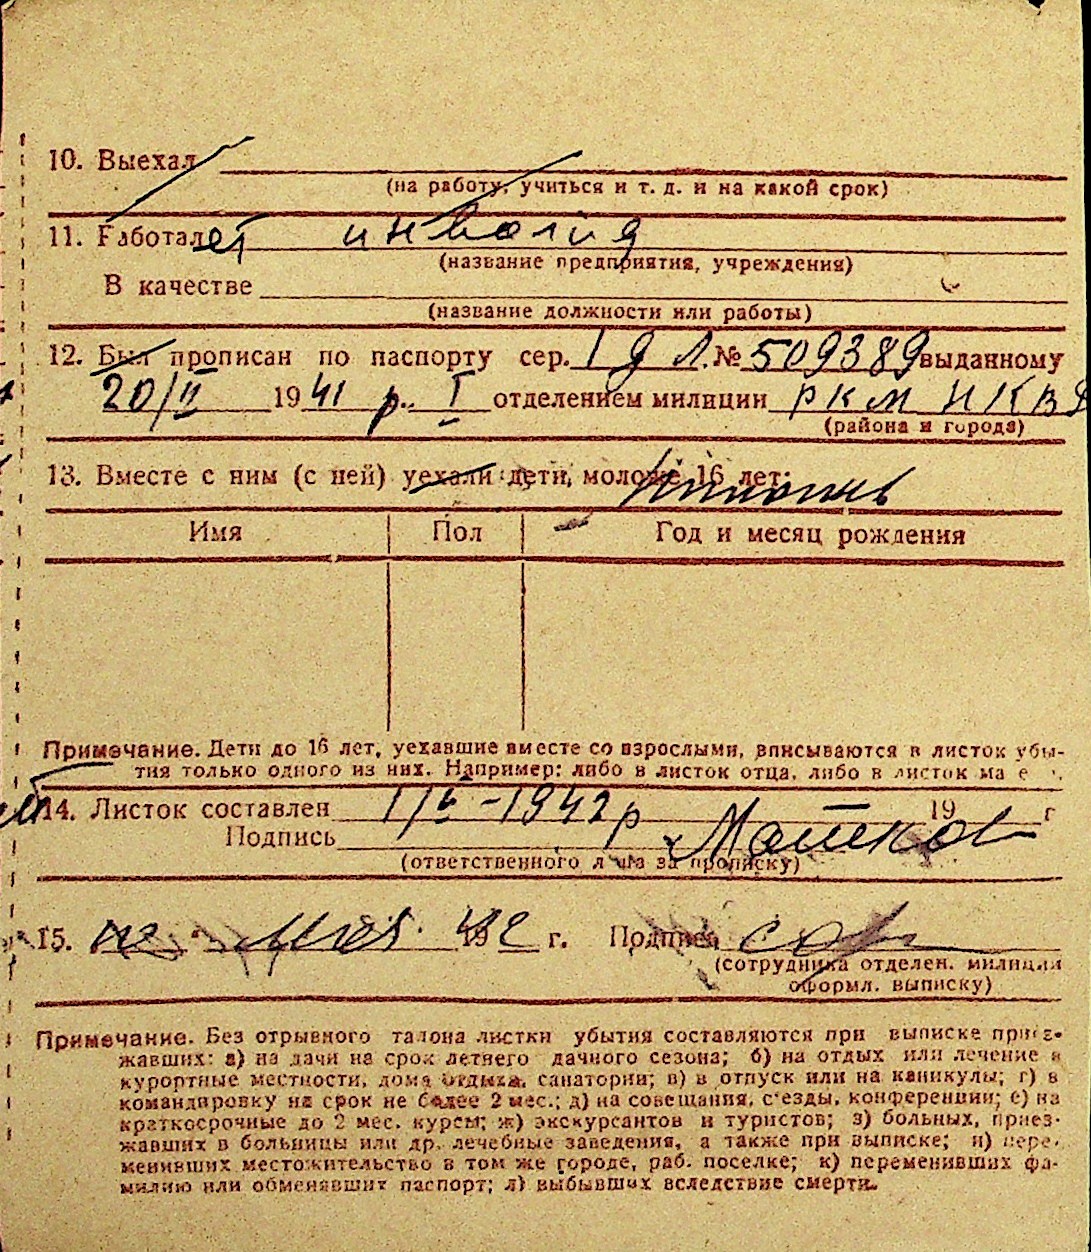 10. Выехал
(на работу, учиться и т. д. и на какой срок)
11. Работает инвалид
(название предприятия, учреждения)
В качестве
(название должности или работы)
12. Был прописан по паспорту сер. I д Л. № 509389 выданному
20/II 1941 р. I отделением милиции РКМ НКВД
(района и города)
13. Вместе с ним (с ней) уехали дети, моложе 16 лет:
Имя Пол Год и месяц рождения
Примечание. Дети до 16 лет, уехавшие вместе со взрослыми, вписываются в листок убы-
тия только одного из них. Например: либо в листок отца, либо в листок
14. Листок составлен 1942 р 19 г
Подпись Машков
(ответственного лица за прописку)
15. мая 1942 г. Подпись
(сотрудника отделен. милиции
оформл. выписку)
Примечание. Без отрывного талона листки убытия составляются при выписке приез-
жавших: а) на дачи на срок летнего дачного сезона; б) на отдых или лечение в
курортные местности, дома отдыха, санатории; в) в отпуск или на каникулы; г) в
командировку на срок не более 2 мес.; д) на совещания, с'езды, конференции; е) на
краткосрочные до 2 мес. курсы; ж) экскурсантов и туристов; з) больных, приез-
жавших в больницы или др. лечебные заведения, а также при выписке; и) пере-
менивших местожительство в том же городе, раб. поселке; к) переменивших фа-
милию или обменявших паспорт; л) выбывших вследствие смерти.